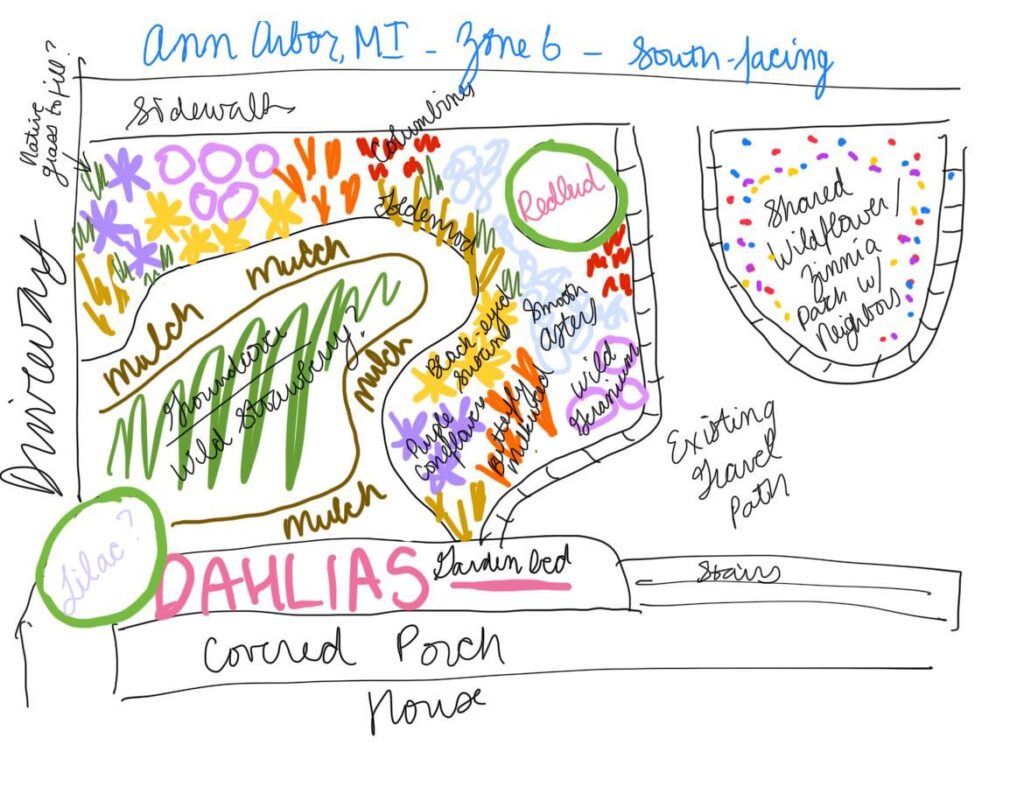 Ann Arbor, MI - Zone 6 - South-facing
Native
grass to fill?
Sidewalk
Columbine
Goldenrod
Redbud
Shared
Wildflower /
Zinnia
Patch w/
Neighbors
Driveway
Mulch
Mulch
Mulch
Mulch
Groundcover
Wild Strawberry?
Black-eyed
Susans
Smooth
Asters
Wild
Geranium
Purple
Coneflower
Butterfly
Milkweed
Existing
Gravel
Path
Lilac?
DAHLIAS
Garden bed
Stairs
Covered Porch
House